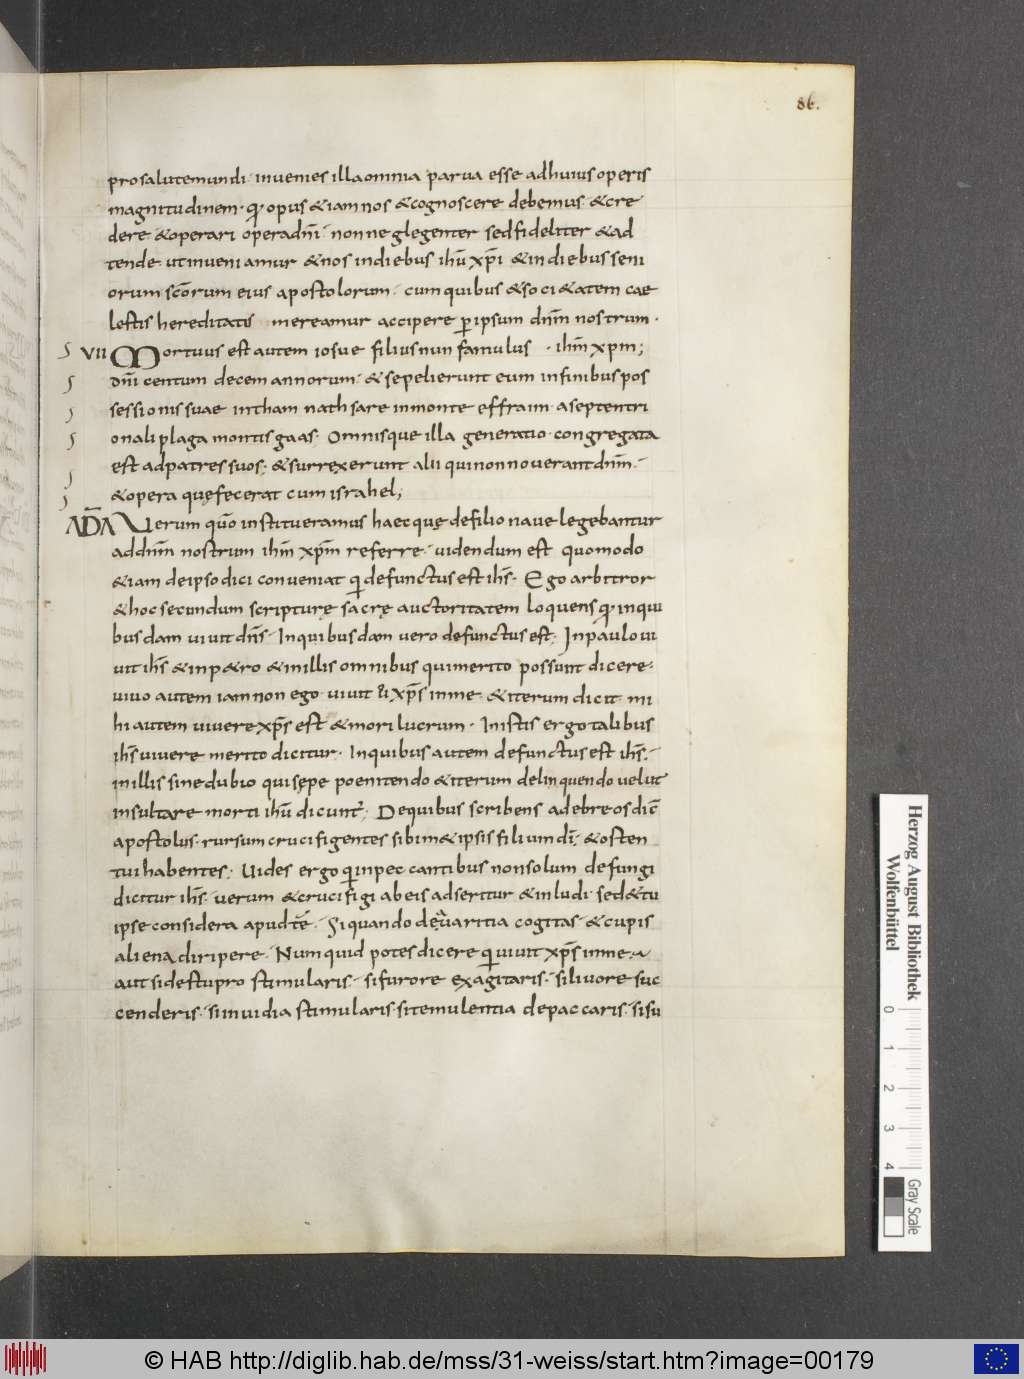 86.
pro salute mundi· invenies illa omnia parva esse ad huius operis
magnitudinem· q· opus &iam nos &cognoscere debemus· &cre
dere &operari opera dñi· non neglegenter sed fideliter &ad
tende· ut inveniamur &nos in diebus ihū xpi &in diebus seni
orum scōrum eius apostolorum· cum quibus &soci&atem cae
lestis hereditatis mereamur accipere p ipsum dñm nostrum·
VII Mortuus est autem iosue filius nun famulus · ihm xpm;
dñi centum decem annorum· &sepelierunt eum in finibus pos
sessionis suae in tham nath sare in monte effraim· a septentri
onali plaga montis gaas· Omnisque illa generatio congregata
est ad patres suos· &surrexerunt alii qui non noverant dñm·
&opera quę fecerat cum israhel;
ADA Verum quō institueramus haec quę de filio nave legebantur
ad dñm nostrum ihm xpm referre· videndum est quomodo
&iam de ipso dici conveniat q defunctus est ihs· Ego arbitror
&hoc secundum scripturę sacrę auctoritatem loquens q· in qui
busdam vivit dñs· In quibusdam vero defunctus est; In paulo vi
vit ihs &in p&ro &in illis omnibus qui merito possunt dicere·
vivo autem iam non ego vivit &i xps in me· &iterum dicit mi
hi autem vivere xps est &mori lucrum· In istis ergo talibus
ihs vivere merito dicitur· In quibus autem defunctus est ihs·
in illis sine dubio qui sępe poenitendo &iterum delinquendo velut
insultare morti ihū dicunt; De quibus scribens ad ebreos dic
apostolus· rursum crucifigentes sibim&ipsis filium di· &osten
tui habentes; Vides ergo q in peccantibus non solum defungi
dicitur ihs· verum &crucifigi ab eis adseritur &inludi· sed &tu
ipse considera apud te· Si quando de avaritia cogitas· &cupis
aliena diripere· Numquid potes dicere q vivit xps in me·
aut si de stupro stimularis· si furore exagitaris· si livore suc
cenderis· si invidia stimularis· si temulentia depaccaris· si su
Herzog August Bibliothek
Wolfenbüttel
0 1 2 3 4
Gray Scale
© HAB http://diglib.hab.de/mss/31-weiss/start.htm?image=00179